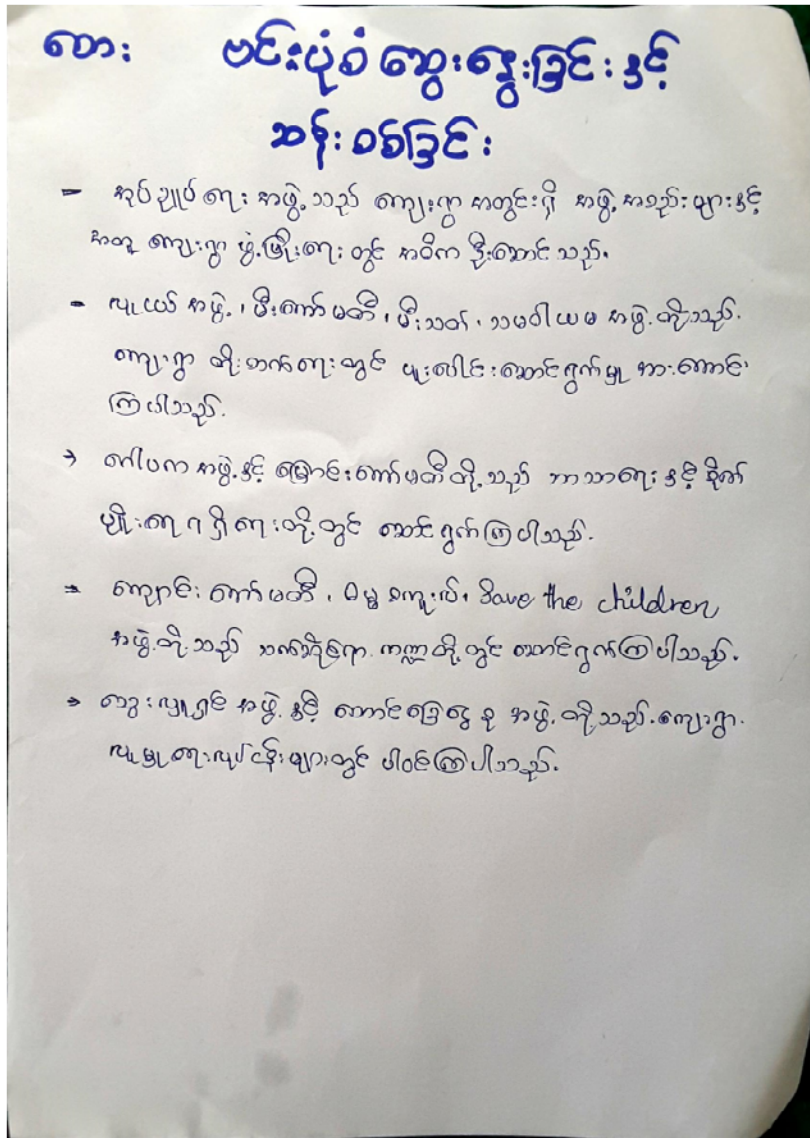 စာ: ဗင်းပုံစံ ဆွေးနွေးခြင်းနှင့်
ဆန်းစစ်ခြင်း
- အုပ်ချုပ်ရေး အဖွဲ့သည် ကျေးရွာ အတွင်းရှိ အဖွဲ့ အစည်းများနှင့်
အတူ ကျေးရွာ ဖွံ့ဖြိုးရေး တွင် အဓိက ဦးဆောင်သည်။
- လူငယ် အဖွဲ့၊ မီးကော်မတီ၊ မီးသတ်၊ သမဝါယမ အဖွဲ့တို့သည်
ကျေးရွာ တိုးတက်ရေးတွင် ပူးပေါင်းဆောင်ရွက်မှု အားကောင်း
ကြပါသည်။
→ ဂေါပက အဖွဲ့နှင့် မြောင်းကော်မတီတို့သည် ဘာသာရေးနှင့် စိုက်
ပျိုးရေး ရရှိရေးတို့တွင် ဆောင်ရွက်ကြပါသည်။
→ ကျောင်းကော်မတီ၊ ဓမ္မစကူးလ်၊ Save the children
အဖွဲ့တို့သည် သက်ဆိုင်ရာ ကဏ္ဍတို့တွင် ဆောင်ရွက်ကြပါသည်။
→ သွေးလှူရှင် အဖွဲ့နှင့် တောင်ခြေငွေစု အဖွဲ့တို့သည် ကျေးရွာ
လူမှုရေးလုပ်ငန်းများတွင် ပါဝင်ကြပါသည်။